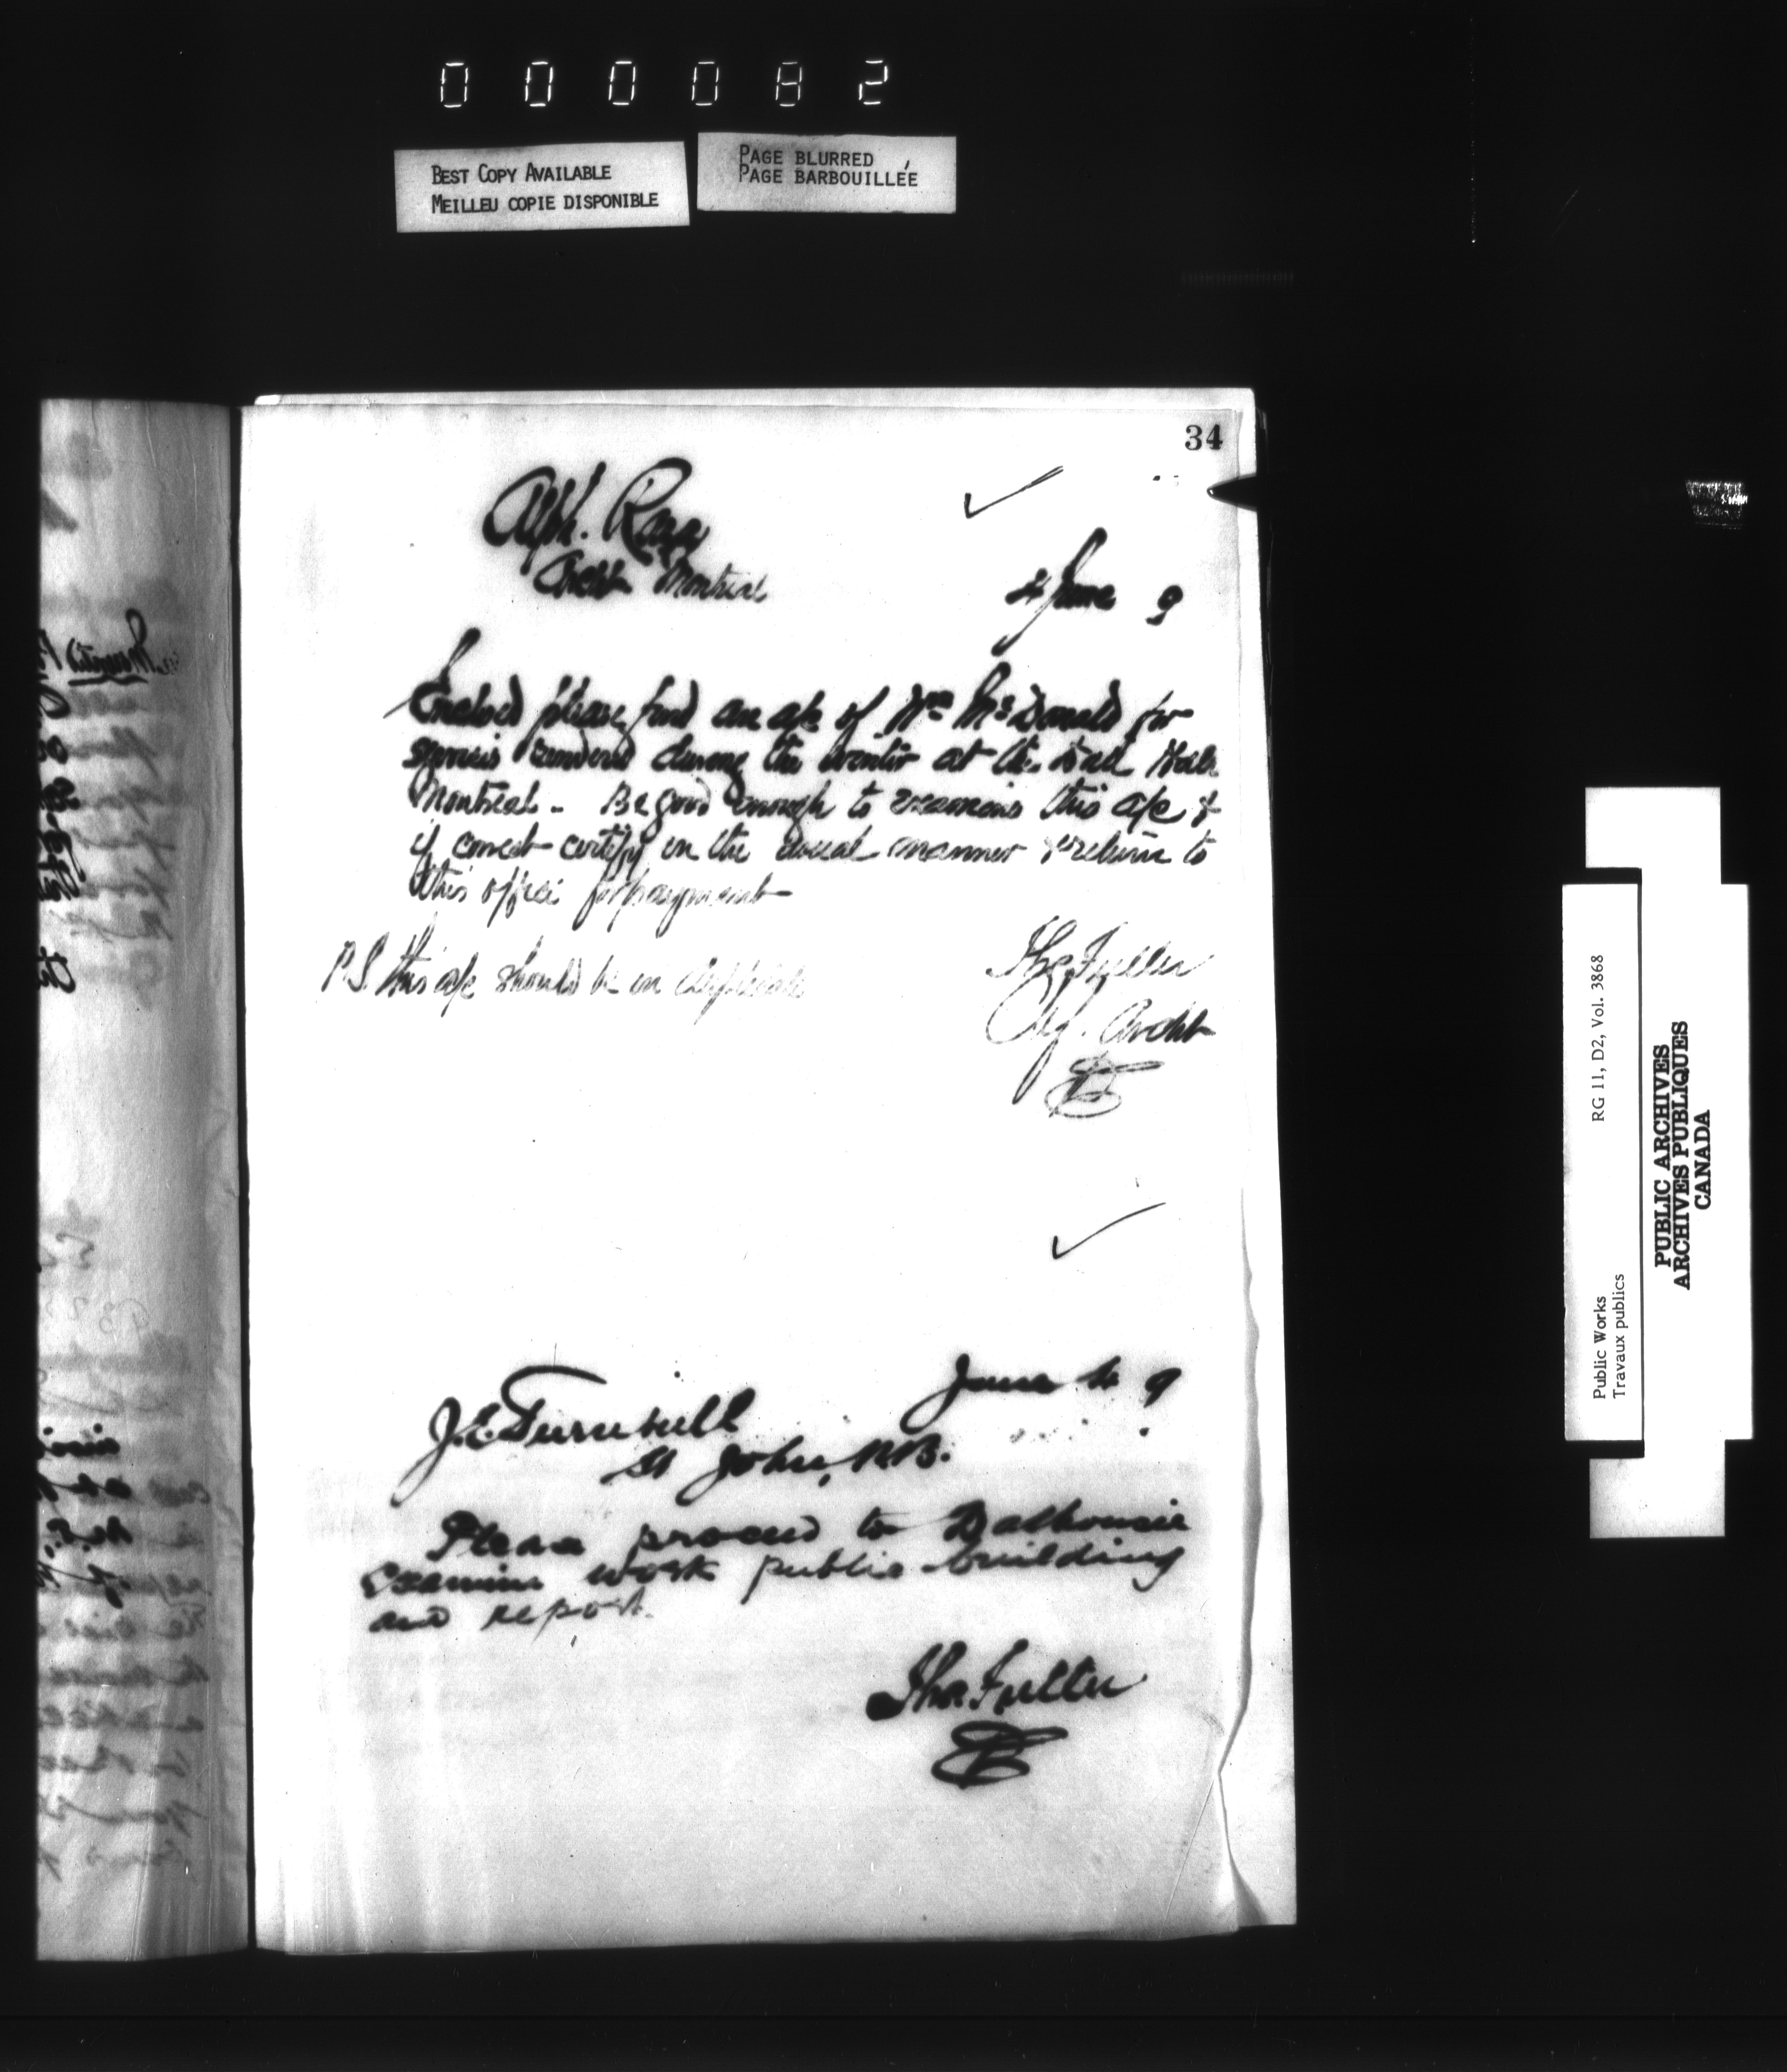 000082
BEST COPY AVAILABLE
MEILLEU COPIE DISPONIBLE
PAGE BLURRED
PAGE BARBOUILLÉE
34
Alph. Raza
Archt Montreal
4 June 9
Enclosed please find an a/c of Wm McDonald for
services rendered during the winter at the Drill Hall
Montreal. Be good enough to examine this a/c &
if correct certify in the usual manner & return to
this office for payment
P.S. this a/c should be in duplicate
Thos Fuller
Chf. Archt
June 4 9
J.E. Turnbull
St John, N.B.
Please proceed to Dalhousie
Examine work public building
and report.
Thos Fuller
Public Works
Travaux publics
RG 11, D2, Vol. 3868
PUBLIC ARCHIVES
ARCHIVES PUBLIQUES
CANADA